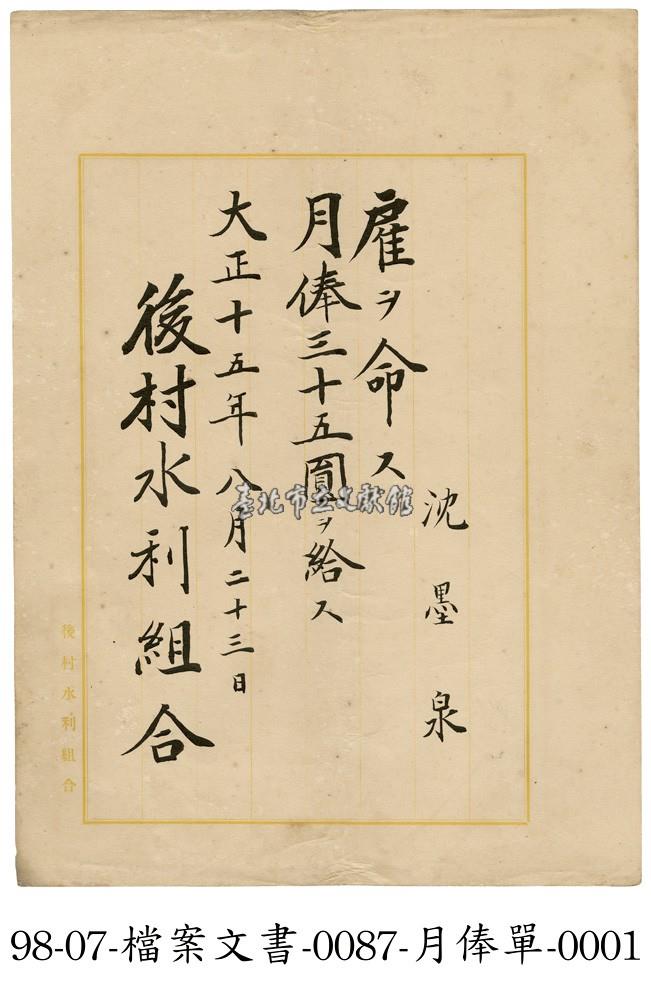 沈墨泉
雇ヲ命ス
月俸三十五圓ヲ給ス
大正十五年八月二十三日
後村水利組合
後村水利組合
臺北市立文獻館
98-07-檔案文書-0087-月俸單-0001